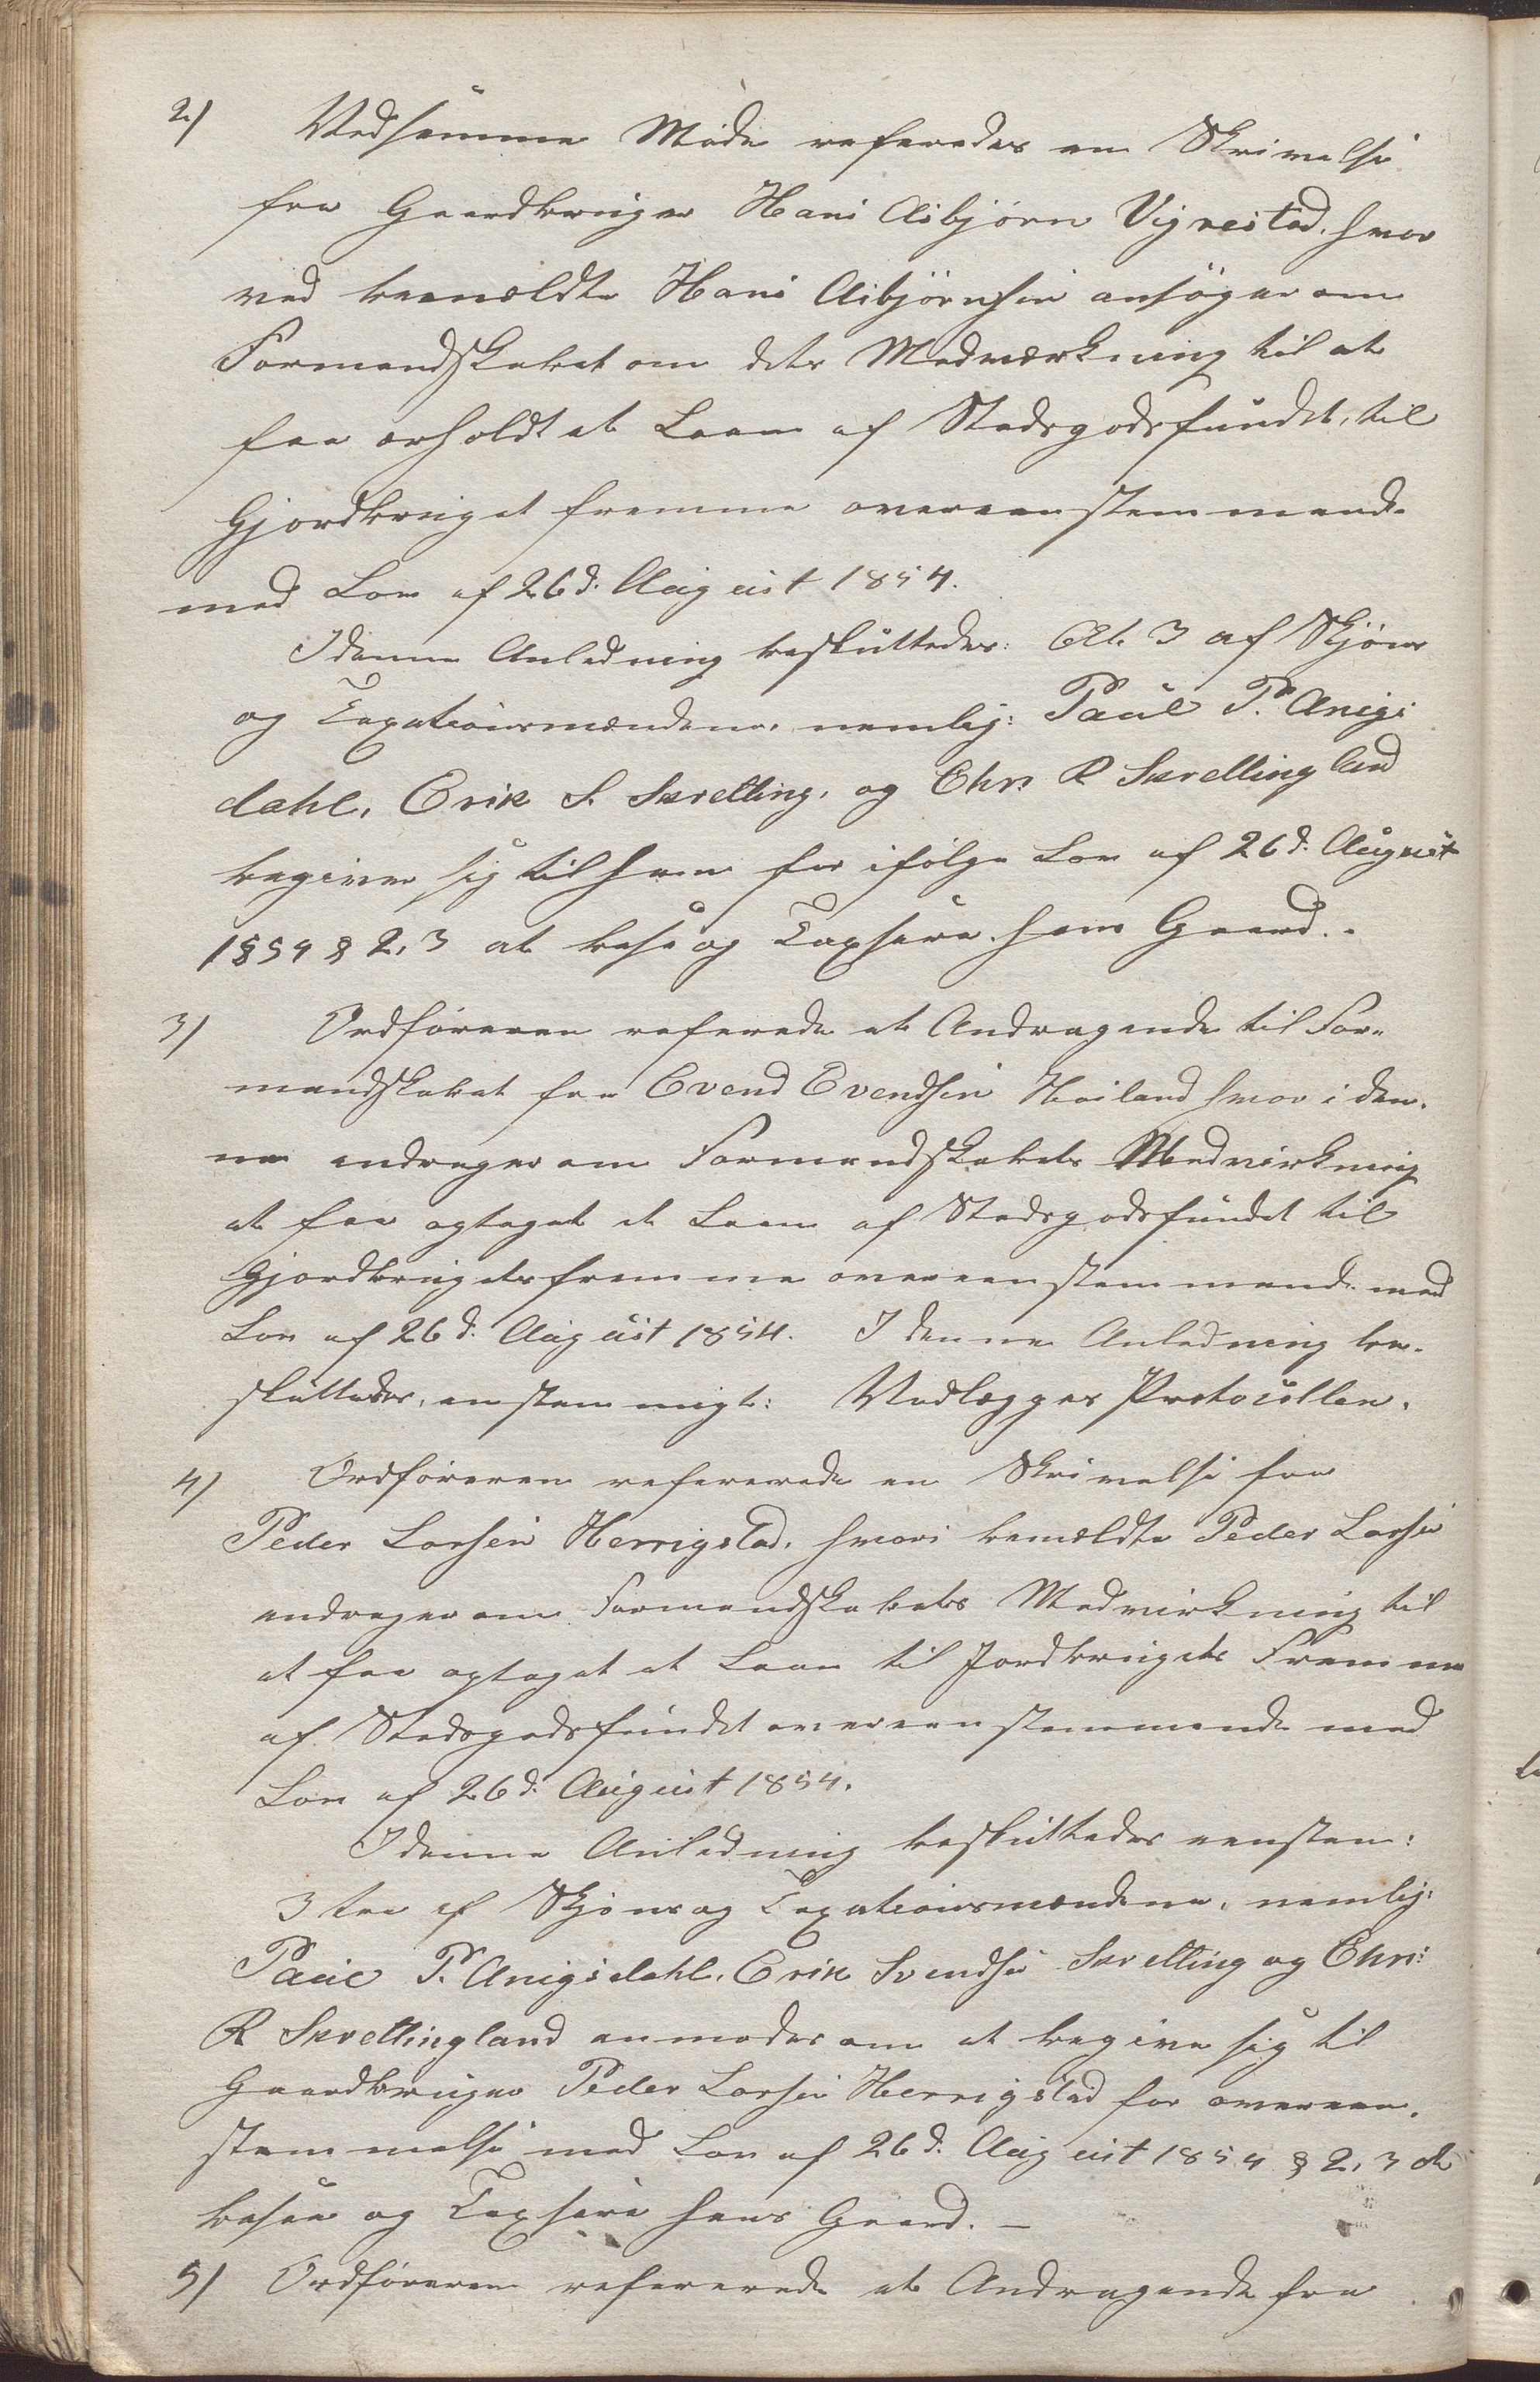 2/ Vedsamme Møde referedes en Skrivelse
fra Gaardbruger Hans Asbjørn Vigrestad, hvor
ved bemældte Hans Asbjørnsen ansøger om
Formandskabet om dets Medværkning til at
faa erholdt et Laan af Stedsgodsfundet, til
Gjordbruget fremme overeenstemmende
med Lov af 26d. August 1854.
I denne Anledning besluttedes: At 3 af Skjøns
og Taxationsmændene, nemlig: Paul P. Anigs
dahl, Erik S. Skretting, og Chr. R Skrettingland
begiver sig til ham for ifølge Lov af 26d. August
1854 § 2, 3 at bese og Taxsere hans Gaard. -
3/ Ordføreren referede et Andragende til For-
mandskabet fra Evend Evendsen Høiland hvor i den-
ne andrager om Formandskabets Medvirkning
at faa optaget et Laan af Stedsgodsfundet til
Gjordbrugets fremme overeenstemmende med
Lov af 26d. August 1854. I denne Anledning be-
sluttedes, enstemmigt: Vedlægges Protocollen.
4/ Ordføreren refererede en Skrivelse fra
Peder Larsen Herrigstad, hvori bemældte Peder Larsen
andrager om Formandskabets Medvirkning til
at faa optaget et Laan til Jordbrugets Fremme
af Stedsgodsfundet overeenstemmende med
Lov af 26d. August 1854.
I denne Anledning besluttedes eenstem:
3 tre af Skjøns og Taxationsmændene, nemlig:
Paul P. Anigsdahl, Erik Svendsen Skretting og Chr:
R Skrettingland anmodes om at begive sig til
Gaardbruger Peder Larsen Herrigstad forovereen-
stemmelse med Lov af 26d. August 1854 § 2, 3 at
besee og Taxsere hans Gaard. -
5/ Ordføreren refererede et Andragende fra